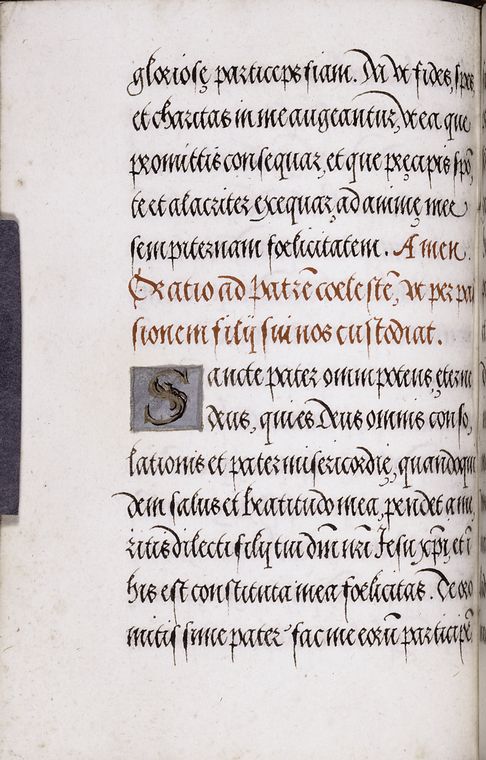 gloriosę particeps siam. Da vt fides, spes
et charitas in me augeantur, vt ea que
promittis consequar, et que pręcipis spō,
te et alacriter exequar, ad animę meę
sempiternam fœlicitatem. Amen
Oratio ad Patrē cœlestē, vt per pas
sionem filij sui nos custodiat.
Sancte pater omnipotens, eterne
Deus, qui es Deus omnis conso,
lationis et pater misericordię, quandoqui
dem salus et beatitudo mea, pendet a me,
ritis dilecti filij tui dn̄i nr̄i Jesu xp̄i, et ī
his est constituta mea fœlicitas. Deoro
mitissime pater fac me eorū participē